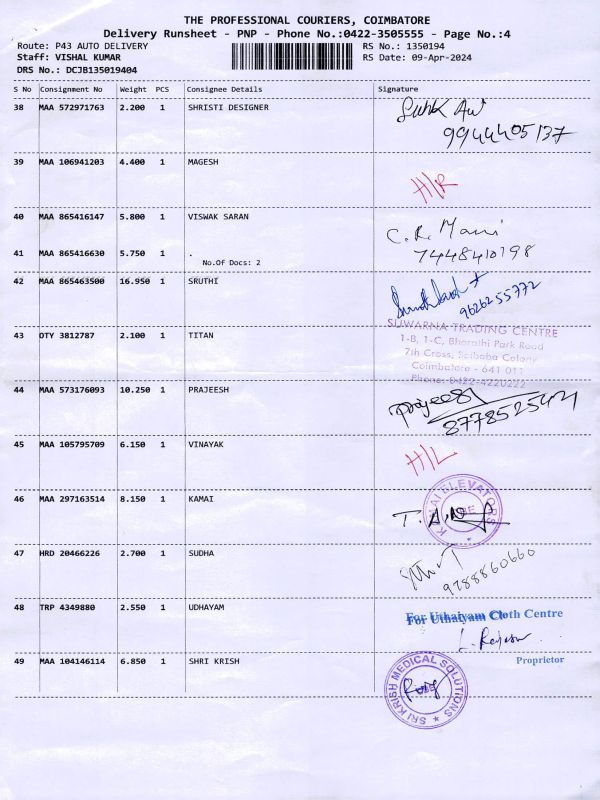 THE PROFESSIONAL COURIERS, COIMBATORE
Delivery Runsheet - PNP - Phone No.:0422-3505555 - Page No.:4
Route: P43 AUTO DELIVERY RS No.: 1350194
Staff: VISHAL KUMAR RS Date: 09-Apr-2024
DRS No.: DCJB135019404
S No Consignment No Weight PCS Consignee Details Signature
38 MAA 572971763 2.200 1 SHRISTI DESIGNER
9944405137
39 MAA 106941203 4.400 1 MAGESH
40 MAA 865416147 5.800 1 VISWAK SARAN
C.R. Mani
41 MAA 865416630 5.750 1 .
7448410198
No.Of Docs: 2
42 MAA 865463500 16.950 1 SRUTHI
9626255772
SUWARNA TRADING CENTRE
43 OTY 3812787 2.100 1 TITAN
1-B, 1-C, Bharathi Park Road
7th Cross, Saibaba Colony
Coimbatore - 641 011
Phone: 0422-4220222
44 MAA 573176093 10.250 1 PRAJEESH
prajeesh
8778525421
45 MAA 105795709 6.150 1 VINAYAK
H/L
46 MAA 297163514 8.150 1 KAMAI
KAMAI ELEVATORS
CBE
47 HRD 20466226 2.700 1 SUDHA
9788860660
48 TRP 4349880 2.550 1 UDHAYAM
For Uthaiyam Cloth Centre
Proprietor
49 MAA 104146114 6.850 1 SHRI KRISH
SRI KRISH MEDICAL SOLUTIONS
CBE